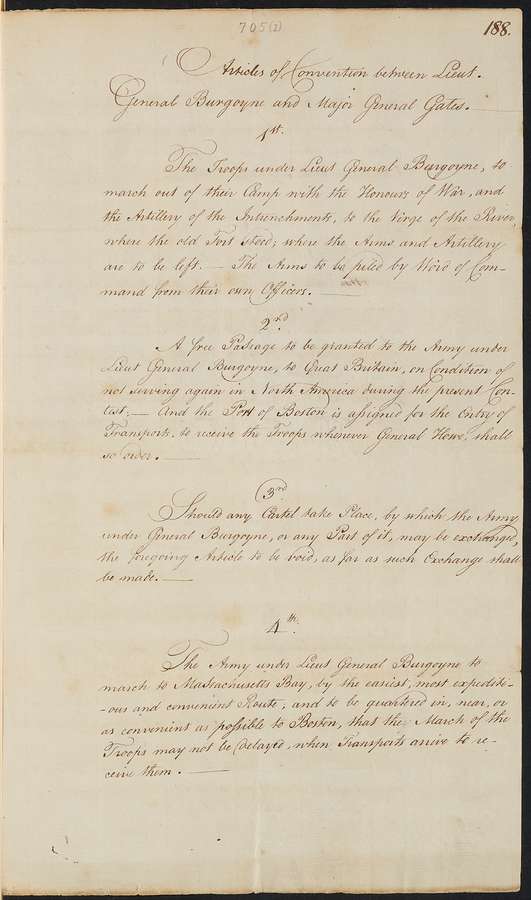 705(2)
188.
Articles of Convention between Lieut.
General Burgoyne and Major General Gates.
1st.
The Troops under Lieut General Burgoyne, to
march out of their Camp with the Honours of War, and
the Artillery of the Intrenchments, to the Verge of the River
where the old Fort stood; where the Arms and Artillery
are to be left. — The Arms to be piled by Word of Com-
mand from their own Officers. —
2nd.
A free Passage to be granted to the Army under
Lieut General Burgoyne, to Great Britain, on Condition of
not serving again in North America during the present Con-
test; — And the Port of Boston is assigned for the Entry of
Transports, to receive the Troops whenever General Howe, shall
so order. —
3rd.
Should any Cartel take Place, by which the Army
under General Burgoyne, or any Part of it, may be exchanged,
the foregoing Article to be void, as far as such Exchange shall
be made. —
4th.
The Army under Lieut General Burgoyne to
march to Massachusetts Bay, by the easiest, most expediti-
-ous and convenient Route; and to be quartered in, near, or
as convenient as possible to Boston, that the March of the
Troops may not be delayed, when Transports arrive to re-
ceive them. —